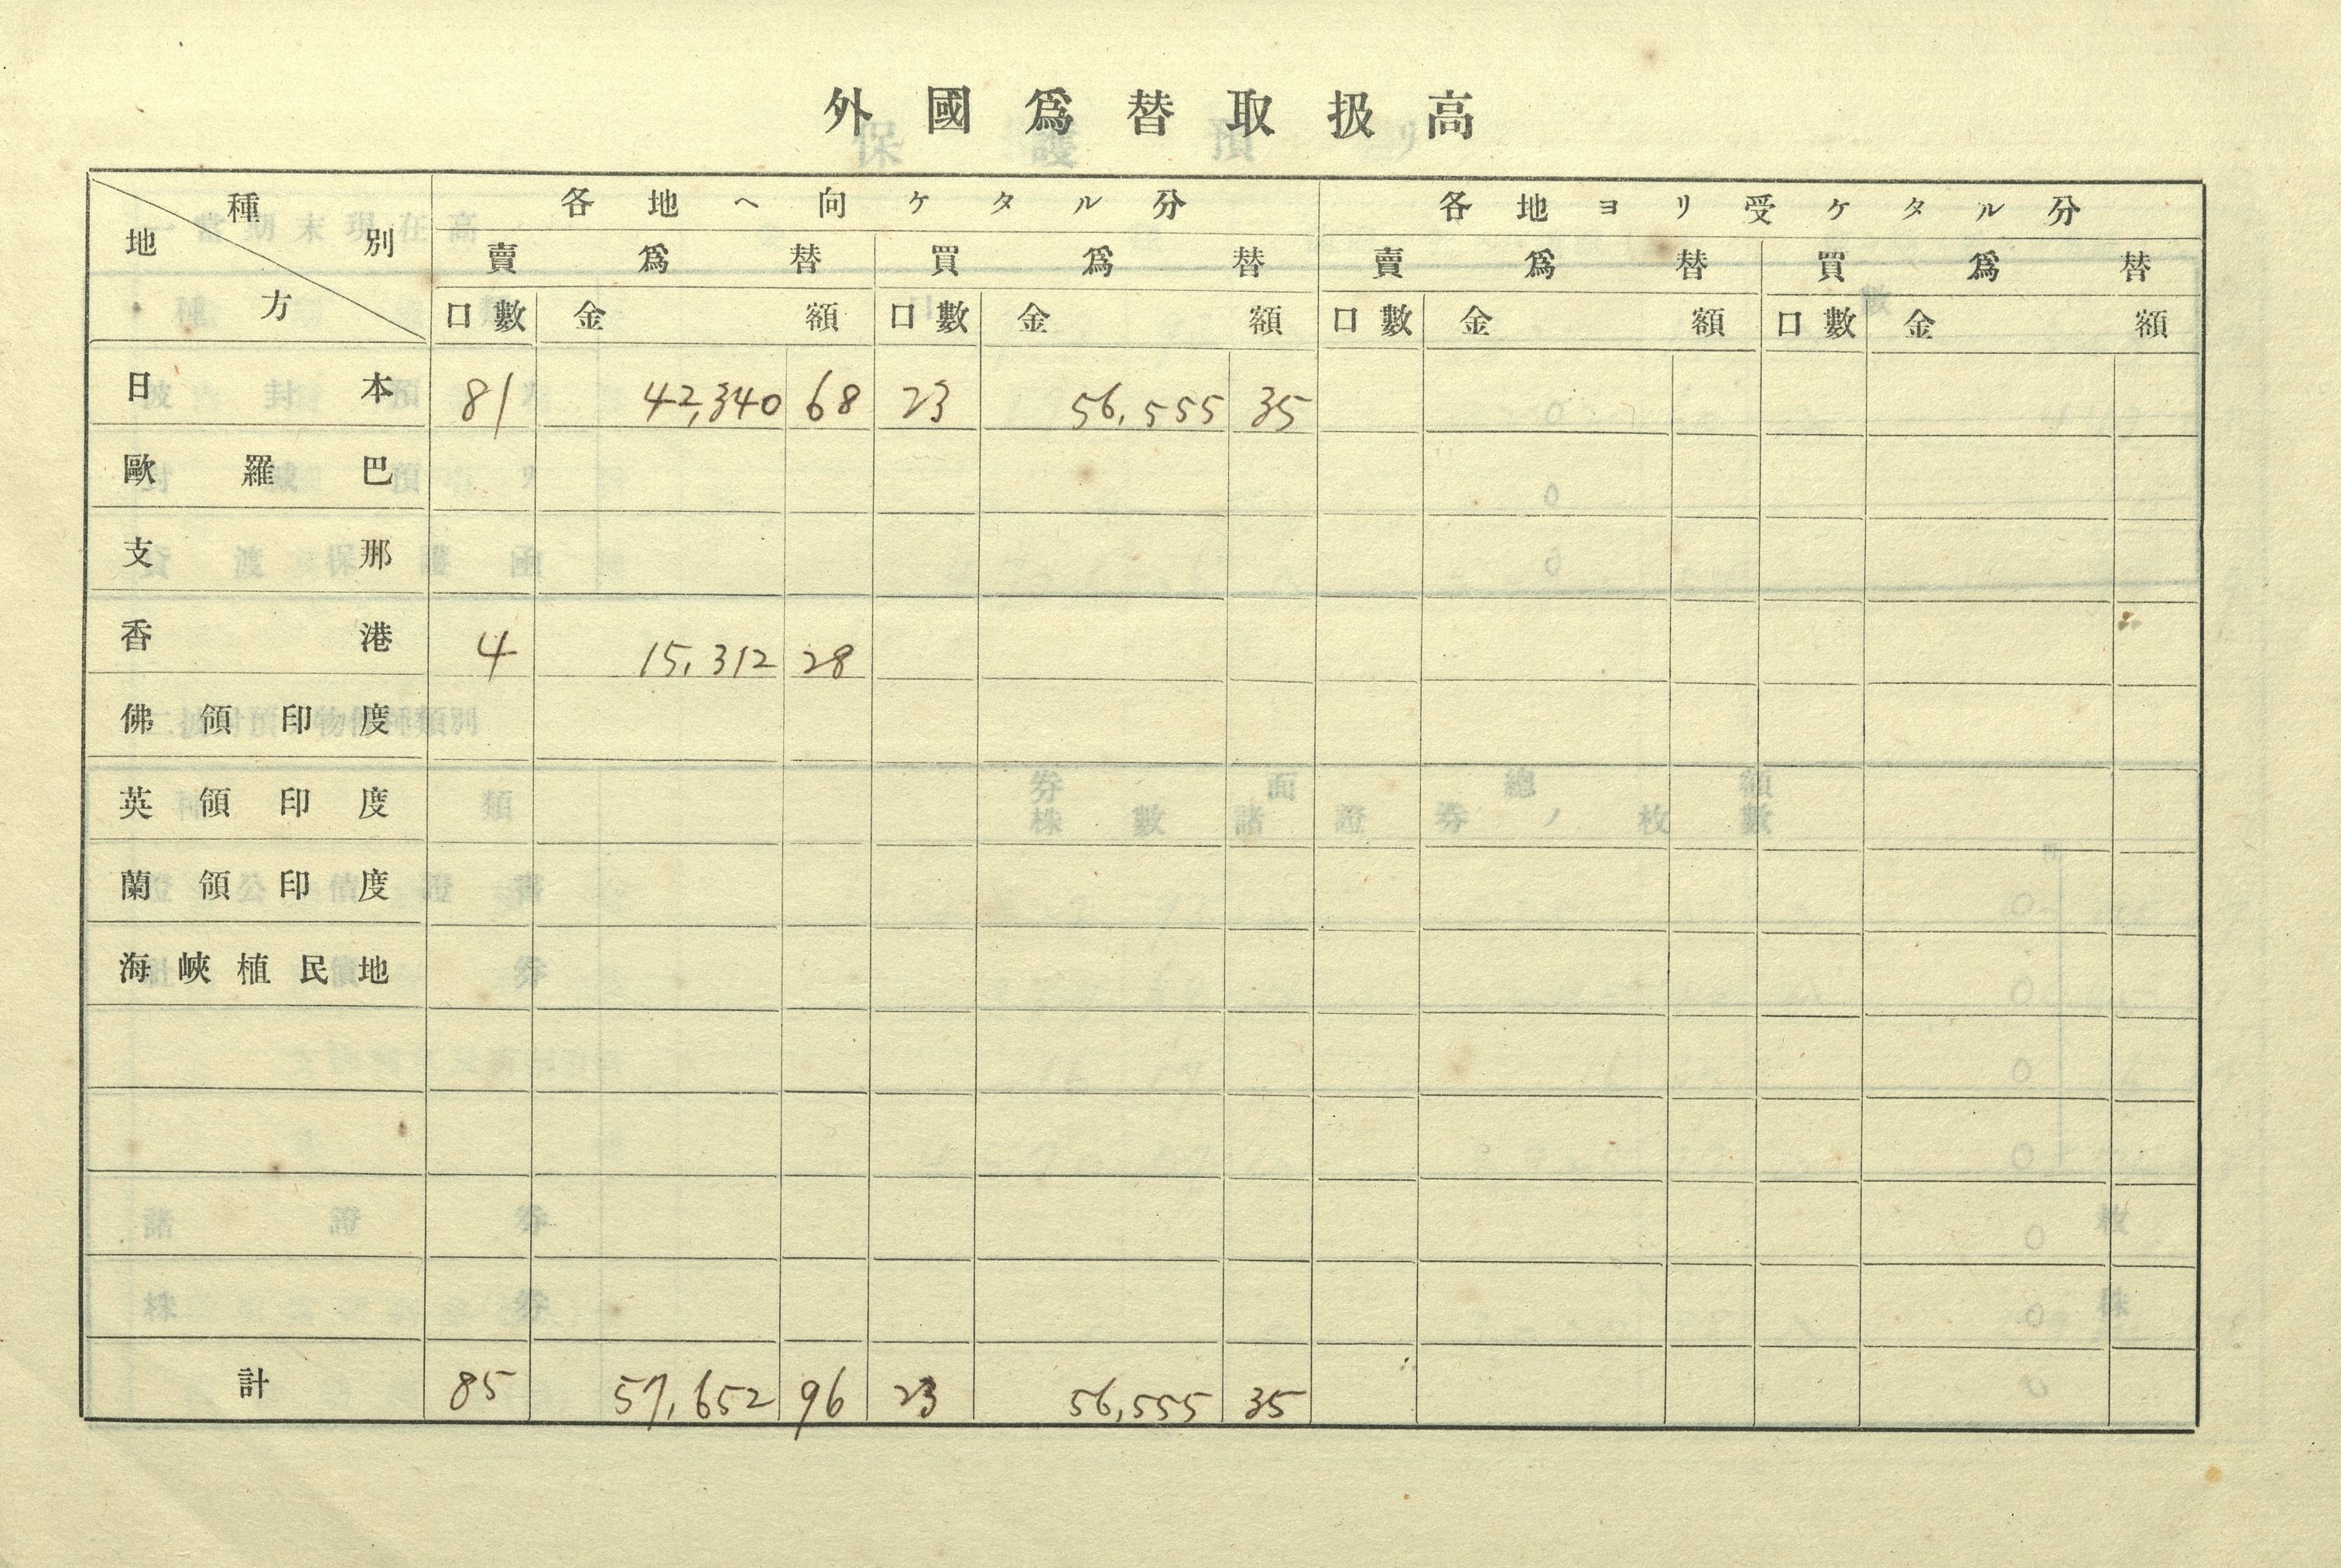 外國爲替取扱高
種別
地方
各地ヘ向ケタル分 各地ヨリ受ケタル分
賣爲替 買爲替 賣爲替 買爲替
口數 金額 口數 金額 口數 金額 口數 金額
日本 81 42,340 68 23 56,555 35
歐羅巴
支那
香港 4 15,312 28
佛領印度
英領印度
蘭領印度
海峽植民地
計 85 57,652 96 23 56,555 35